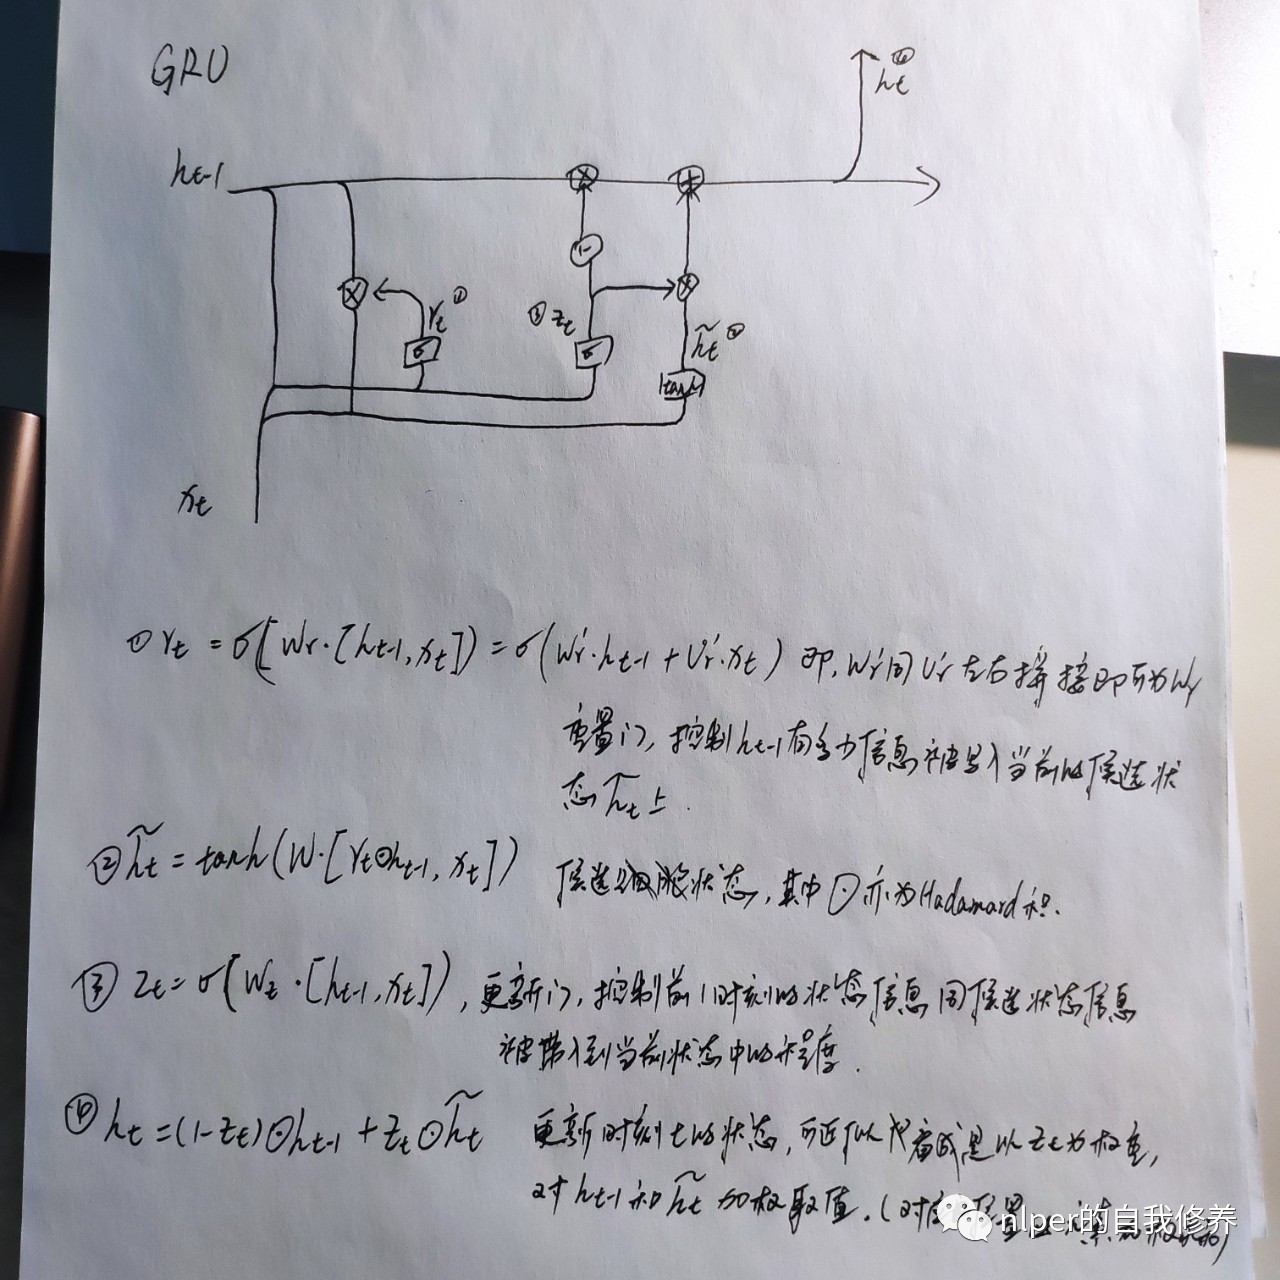 GRU
h_t ④
h_{t-1}
1-
r_t ①
③ z_t
h̃_t ②
σ
σ
tanh
x_t
① r_t = σ(W_r·[h_{t-1}, x_t]) = σ(W_r'·h_{t-1} + U_r'·x_t) 即, W_r'同U_r'左右拼接即可为W_r
重置门, 控制h_{t-1}有多少信息被写入当前的候选状
态h̃_t上.
② h̃_t = tanh(W·[r_t⊙h_{t-1}, x_t]) 候选细胞状态, 其中⊙亦为Hadamard积.
③ z_t = σ(W_z·[h_{t-1}, x_t]), 更新门, 控制前1时刻的状态信息同候选状态信息
被带入到当前状态中的程度.
④ h_t = (1-z_t)⊙h_{t-1} + z_t⊙h̃_t 更新时刻t的状态, 可近似看成是以z_t为权重,
对h_{t-1}和h̃_t加权取值. (对应位置
nlper的自我修养